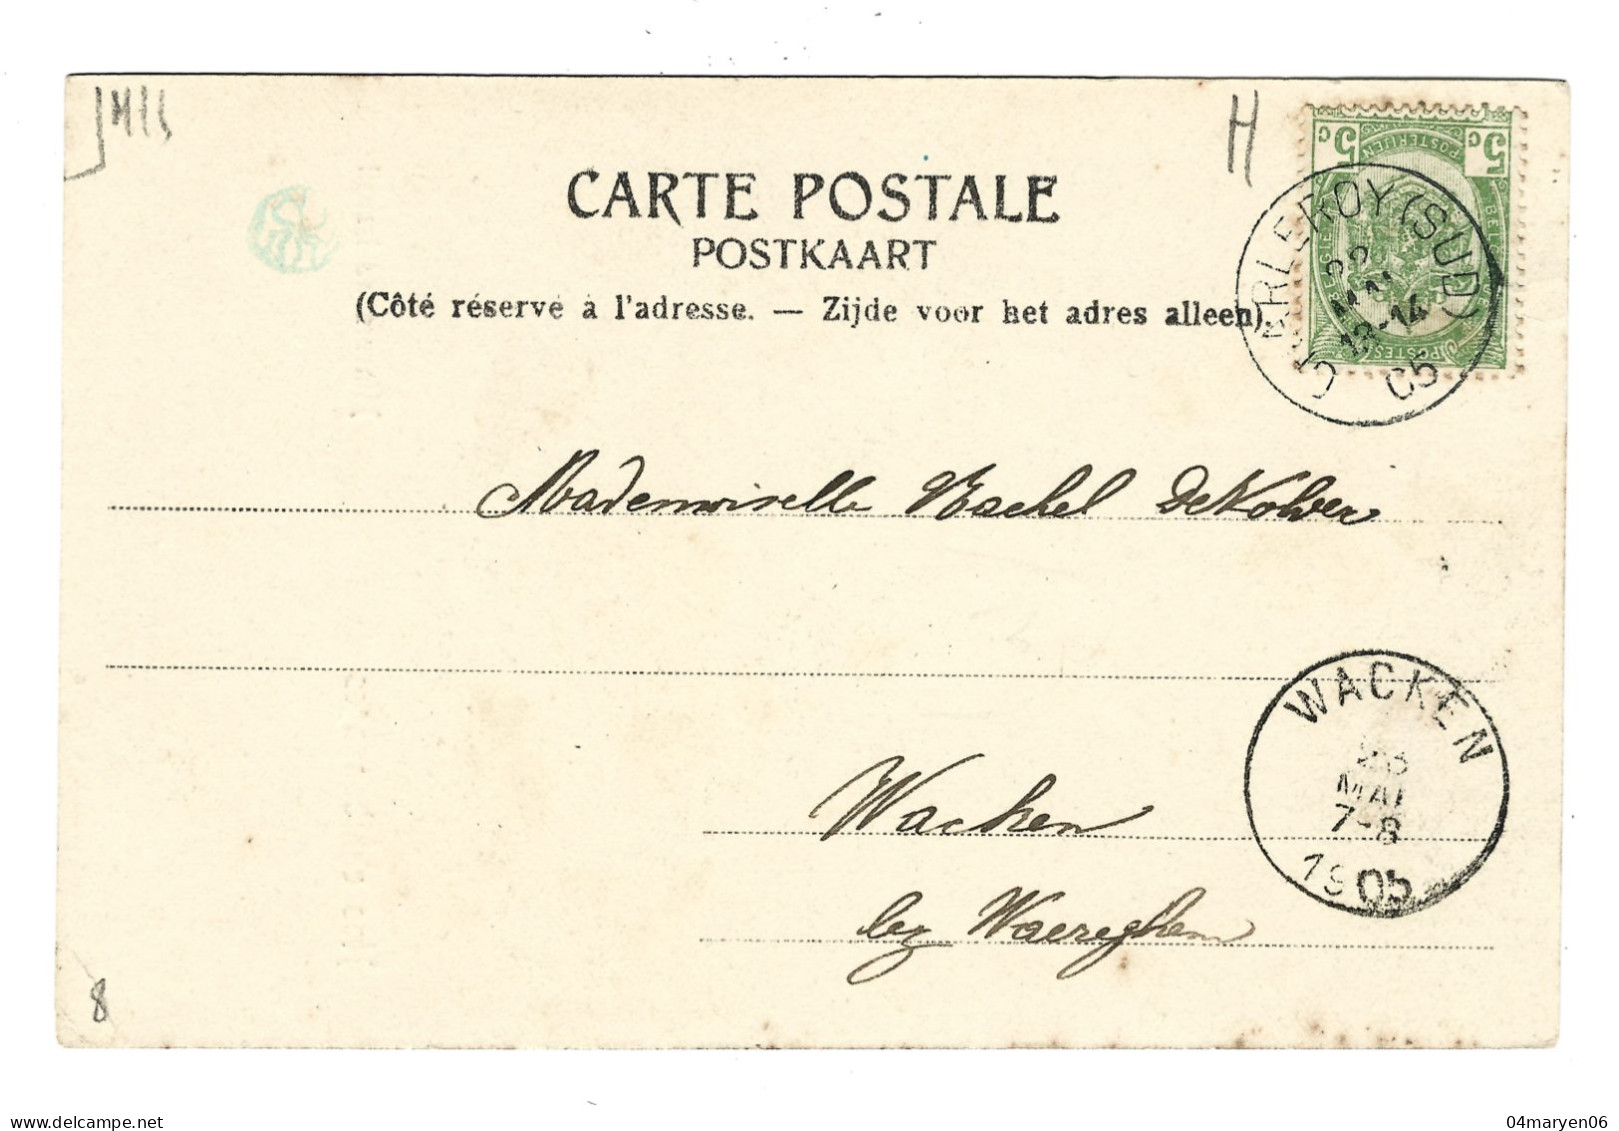 H
CARTE POSTALE
POSTKAART
(Côté réservé à l'adresse. — Zijde voor het adres alleen).
5 c 5 c
POSTERIJEN
POSTES
CHARLEROY (SUD)
22
MAI
13-14
05
Mademoiselle Rachel DeVolder
WACKEN
23
MAI
7-8
1905
Wacken
lez Waereghem
8
04maryen06